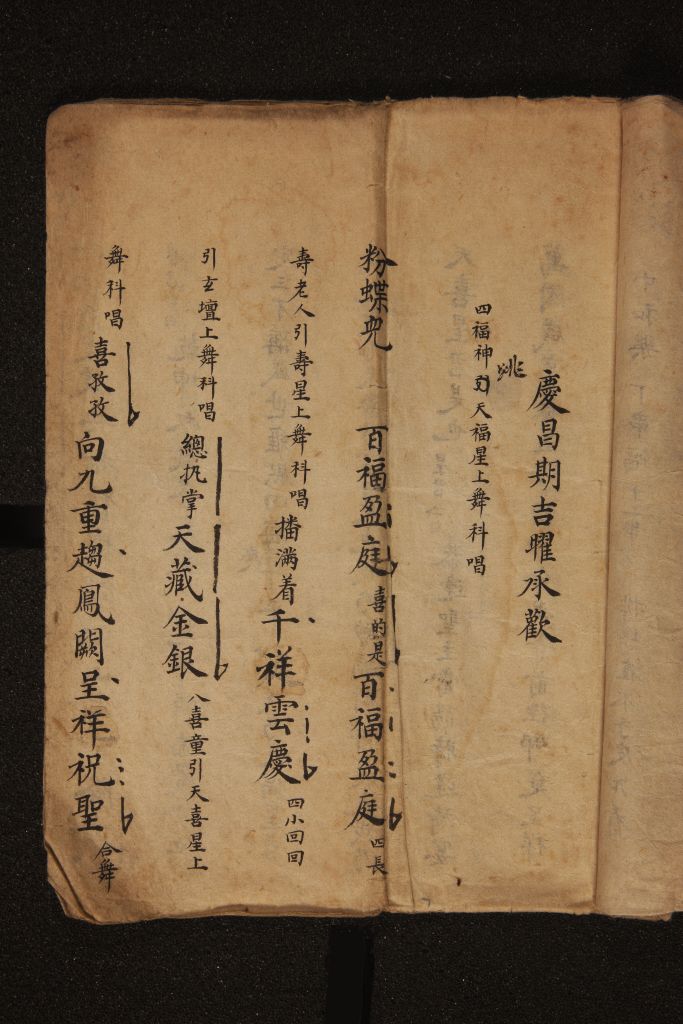 慶昌期吉曜承歡
跳
四福神引天福星上舞科唱
粉蝶兒 百福盈庭喜的是百福盈庭四長
壽老人引壽星上舞科唱播滿着千祥雲慶四小回回
引玄壇上舞科唱總扤掌天藏金銀八喜童引天喜星上
舞科唱喜孜孜向九重趨鳳闕呈祥祝聖合舞